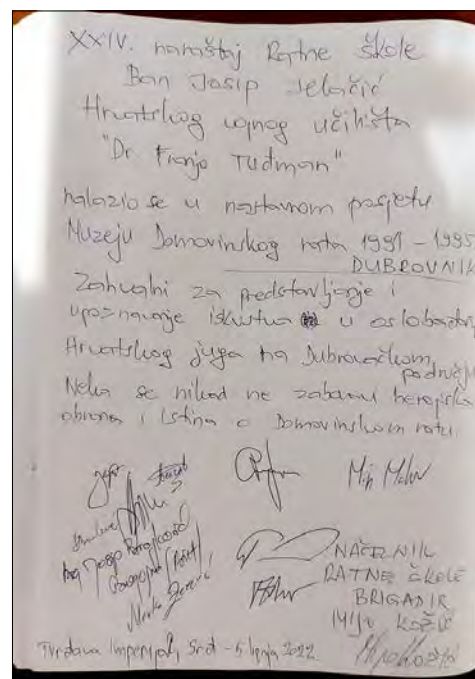 XXIV. naraštaj Ratne škole
Ban Josip Jelačić
Hrvatskog vojnog učilišta
"Dr Franjo Tuđman"
nalazio se u nastavnom posjetu
Muzeju Domovinskog rata 1991 - 1995
DUBROVNIK
Zahvalni za predstavljanje i
upoznavanje iskustva u oslobađanju
Hrvatskog juga na Dubrovačkom
području
Neka se nikad ne zaboravi herojska
obrana i istina o Domovinskom ratu.
NAČELNIK
RATNE ŠKOLE
BRIGADIR
MIJO KOŽIĆ
Tvrđava Imperijal, Srđ - 5 lipnja 2022.